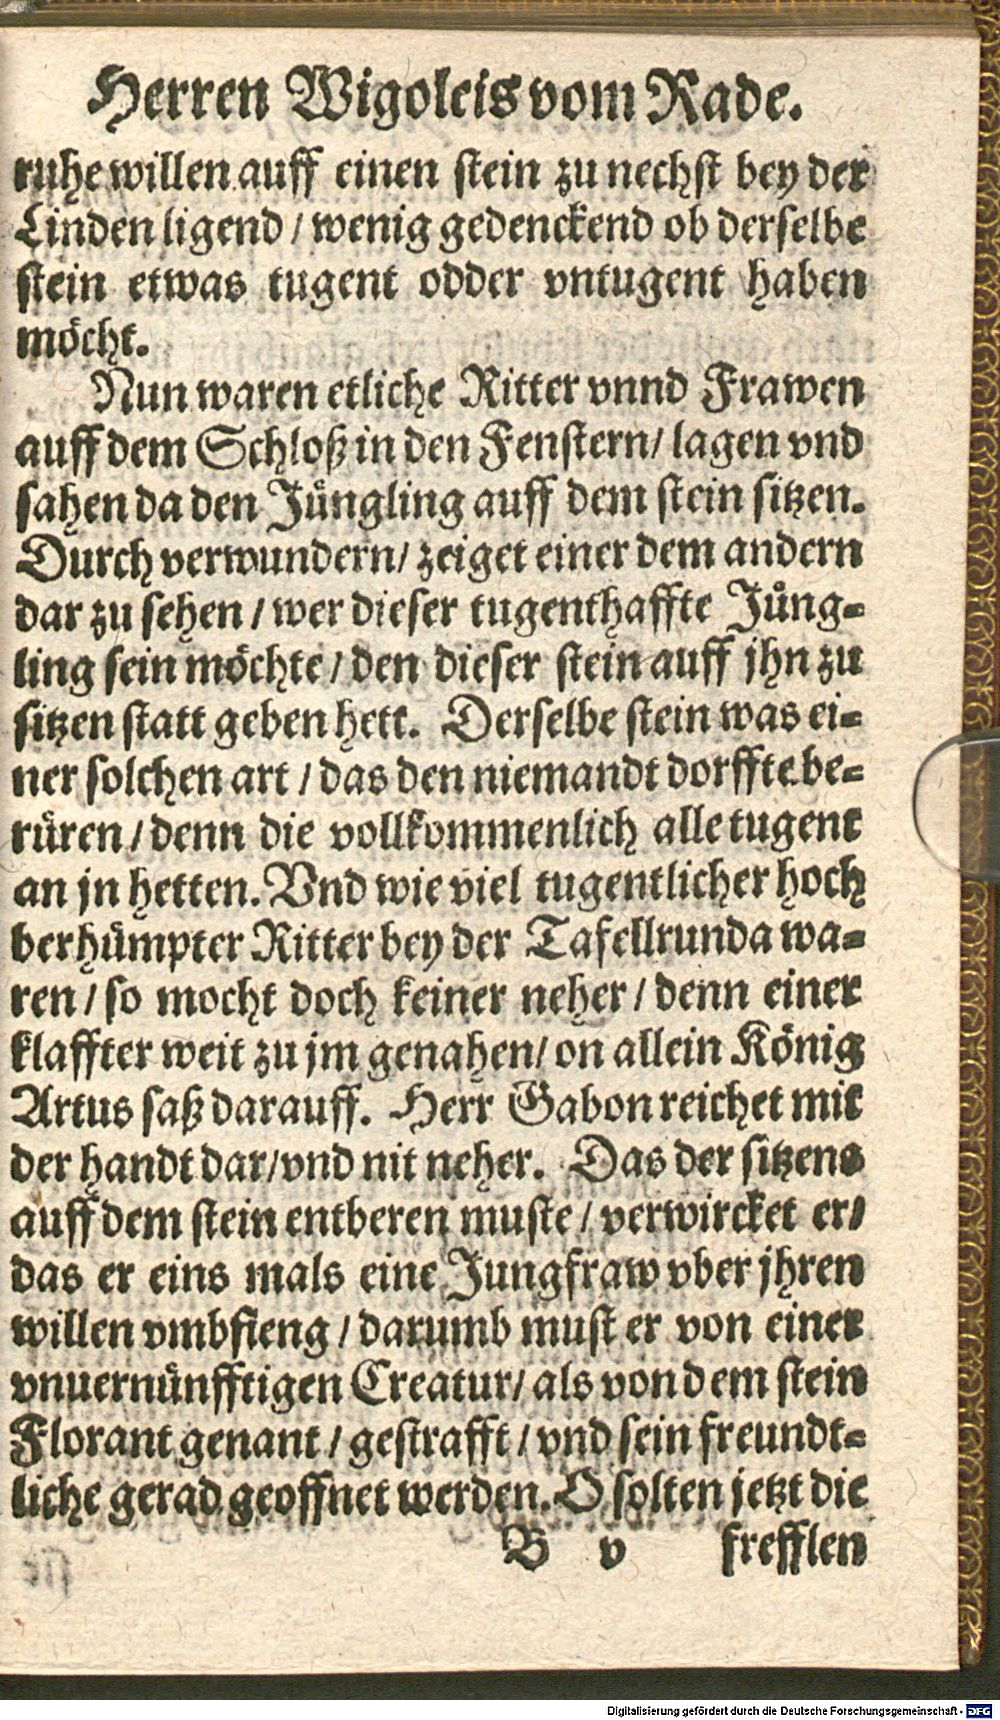 Herren Wigoleis vom Rade.
ruhe willen auff einen stein zu nechst bey der
Linden ligend / wenig gedenckend ob derselbe
stein etwas tugent odder vntugent haben
möcht.
Nun waren etliche Ritter vnnd Frawen
auff dem Schloß in den Fenstern / lagen vnd
sahen da den Jüngling auff dem stein sitzen.
Durch verwundern / zeiget einer dem andern
dar zu sehen / wer dieser tugenthaffte Jüng=
ling sein möchte / den dieser stein auff jhn zu
sitzen statt geben hett. Derselbe stein was ei=
ner solchen art / das den niemandt dorffte be=
rüren / denn die vollkommenlich alle tugent
an jn hetten. Vnd wie viel tugentlicher hoch
berhümpter Ritter bey der Tafellrunda wa=
ren / so mocht doch keiner neher / denn einer
klaffter weit zu jm genahen / on allein König
Artus saß darauff. Herr Gabon reichet mit
der handt dar / vnd nit neher. Das der sitzens
auff dem stein entberen muste / verwircket er /
das er eins mals eine Jungfraw vber jhren
willen vmbfieng / darumb must er von einer
vnuernünfftigen Creatur / als von dem stein
Florant genant / gestrafft / vnd sein freundt=
liche gerad geoffnet werden. O solten jetzt die
B v frefflen
Digitalisierung gefördert durch die Deutsche Forschungsgemeinschaft - DFG